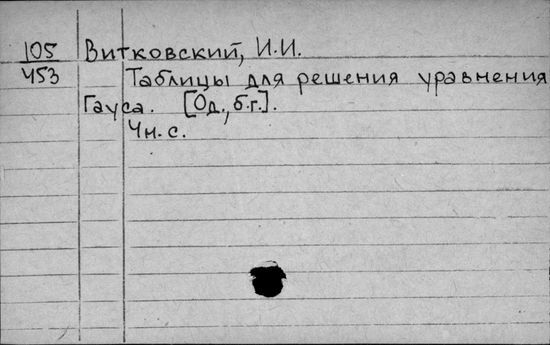 105 Витковский, И.И.
453 Таблицы для решения уравнения
Гауса. [Од., б.г.].
Чн. с.